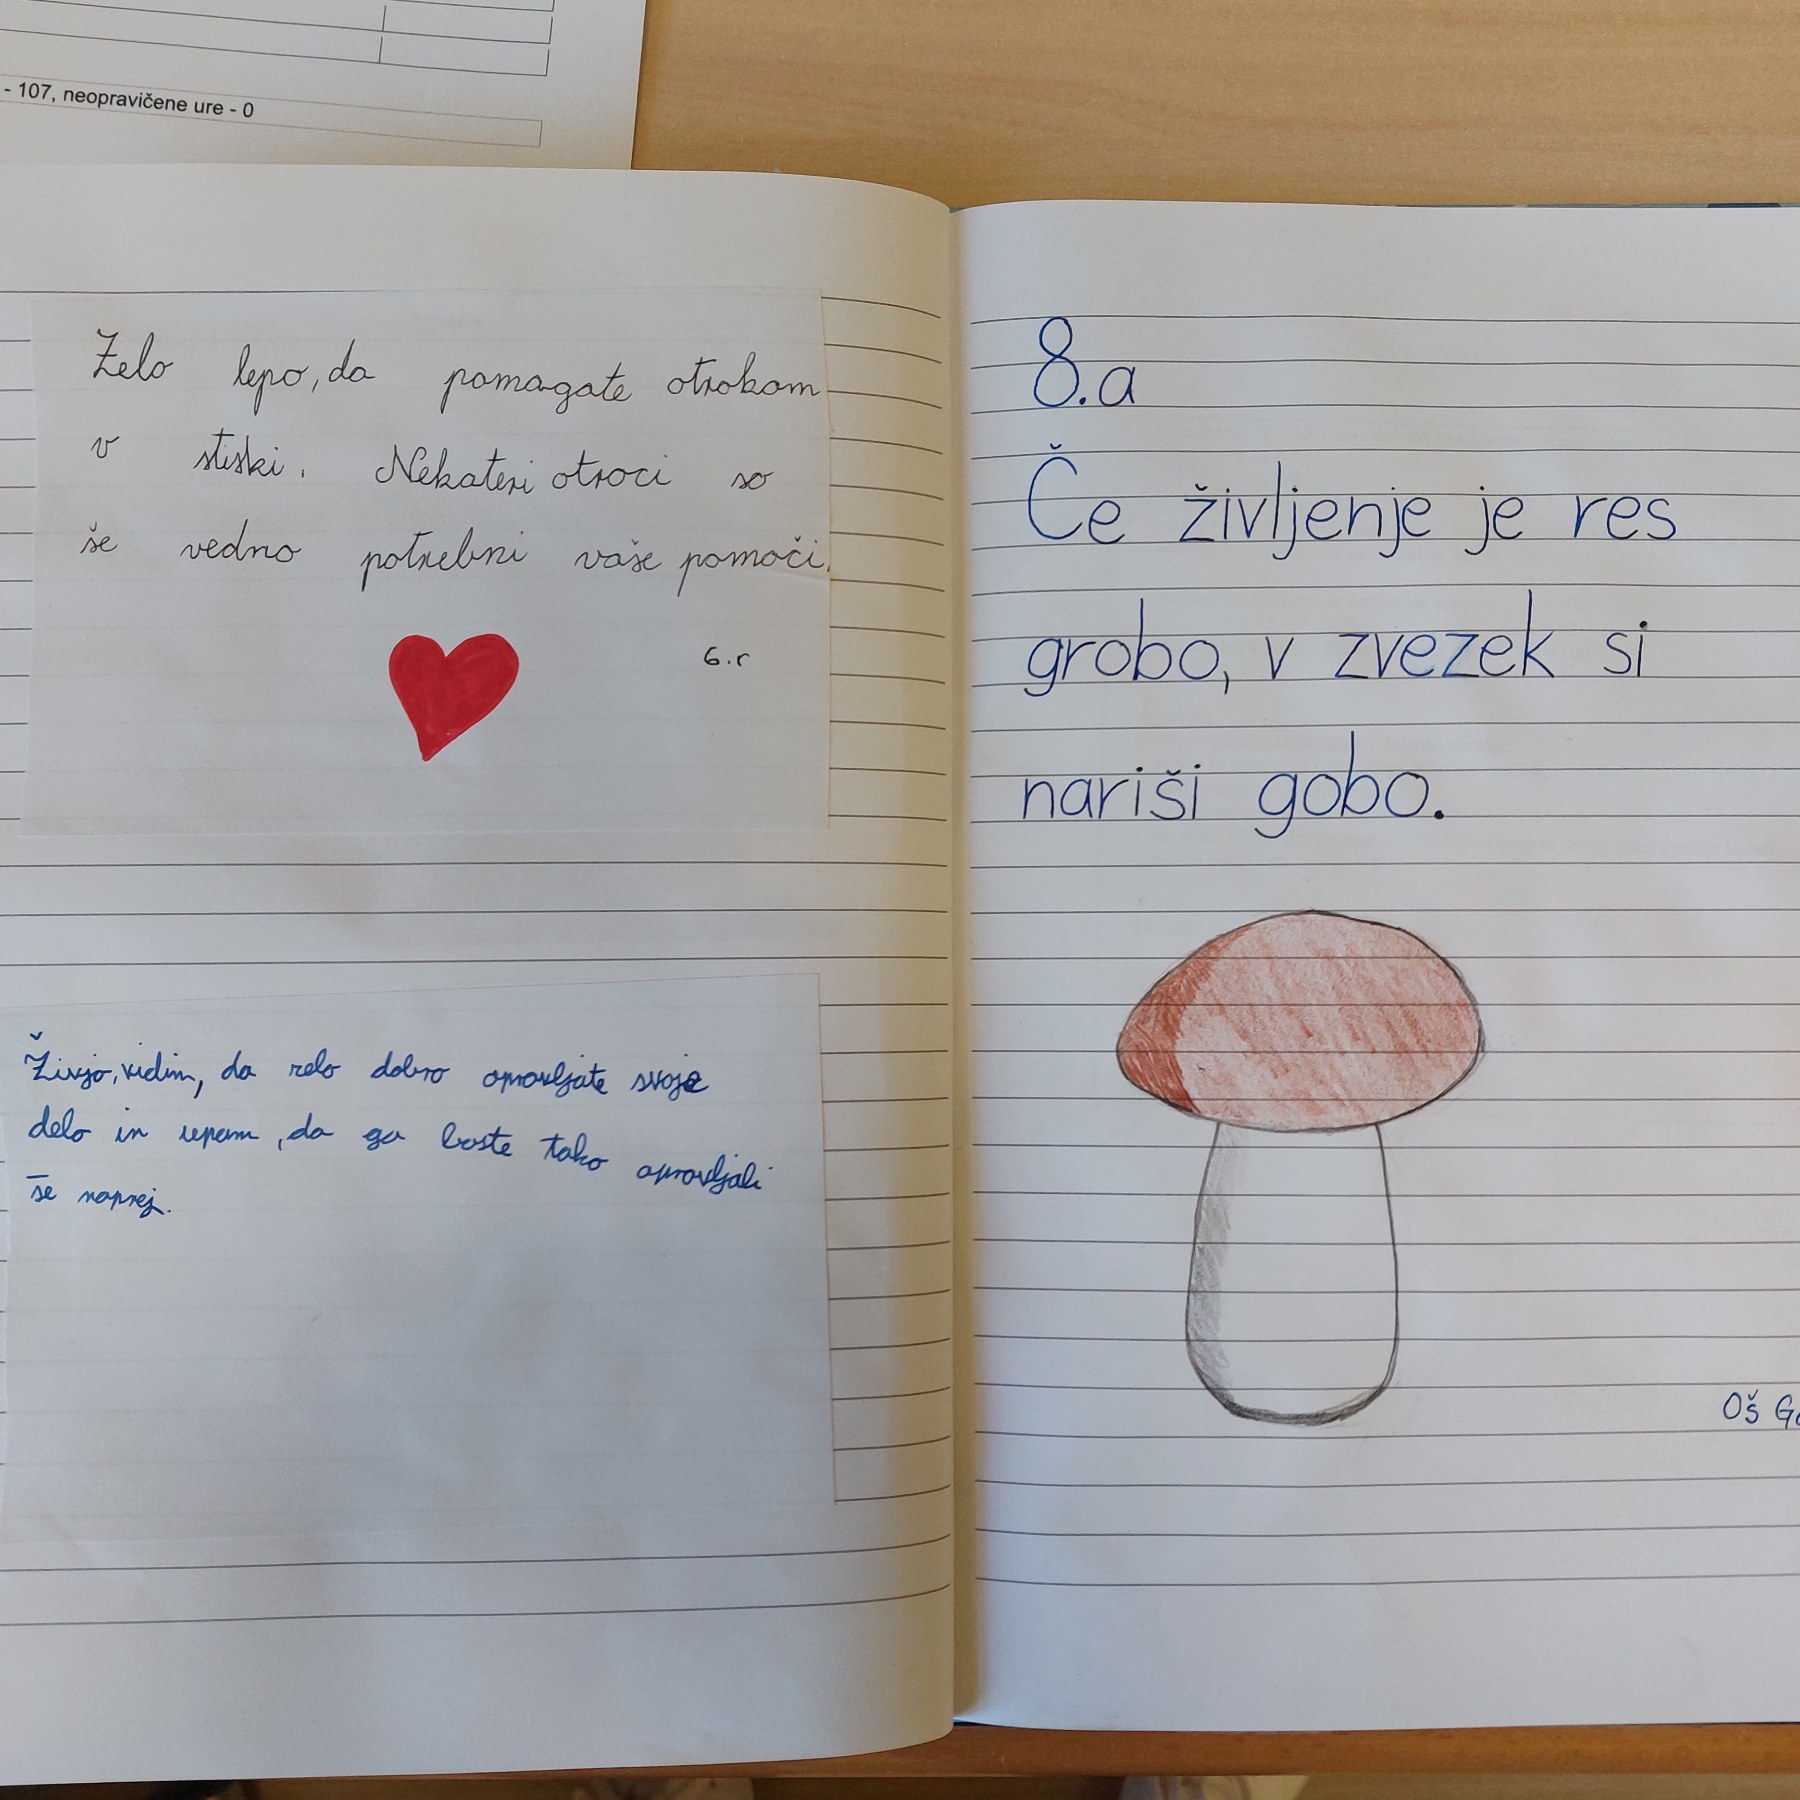 - 107, neopravičene ure - 0
Zelo lepo, da pomagate otrokom
v stiski. Nekateri otroci so
še vedno potrebni vaše pomoči.
6.r
Živjo, vidim, da zelo dobro opravljate svoje
delo in upam, da ga boste tako opravljali
še naprej.
8.a
Če življenje je res
grobo, v zvezek si
nariši gobo.
OŠ